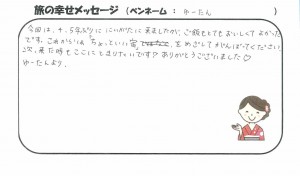 旅の幸せメッセージ（ペンネーム：ゆーたん）
今回は、十.5年ぶりににいがたに来ましたが、ご飯もとてもおいしくてよかった
です。これからはちょっといい宿、をめざしてがんばってください
次、来た時もここにとまりたいです？ありがとうございました♡
ゆーたんより。